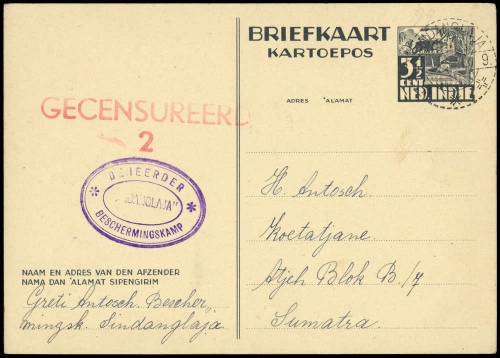 BRIEFKAART
KARTOEPOS
3½
CENT
NED. INDIE
ADRES 'ALAMAT
GECENSUREERD
2
BEHEERDER
BESCHERMINGSKAMP
H. Antosch.
Koetatjane
Atjeh Blok B./7
Sumatra.
NAAM EN ADRES VAN DEN AFZENDER
NAMA DAN 'ALAMAT SIPENGIRIM
Greti Antosch. Bescher,,
mingsk. Sindanglaja.